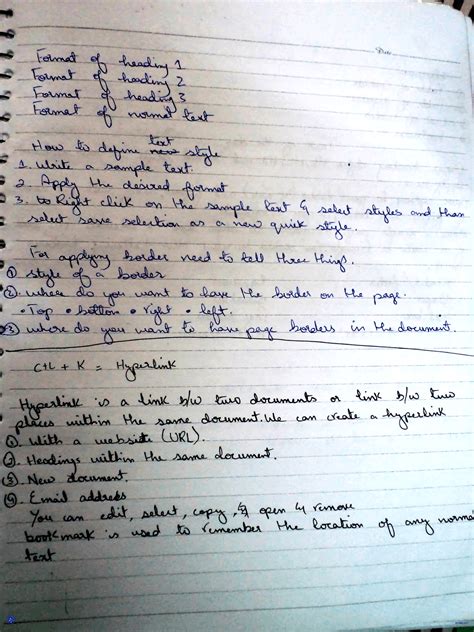 Format of heading 1
Format of heading 2
Format of heading 3
Format of normal text
How to define new text style
1. Write a sample text.
2. Apply the desired format
3. to Right click on the sample text & select styles and than
select save selection as a new quick style.
For applying border need to tell three things.
① style of a border
②. where do you want to have the border on the page.
• Top • bottom • right • left.
③ where do you want to have page borders in the document.
Ctl + K = Hyperlink
Hyperlink is a link b/w two documents or link b/w two
places within the same document. We can create a hyperlink
①. With a website (URL).
②. Headings within the same document.
③. New document.
④. Email address
You can edit, select, copy, & open & remove
bookmark is used to remember the location of any normal
text